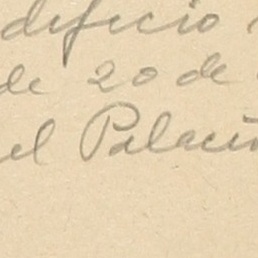 edificio
de 20 de
el Palacio